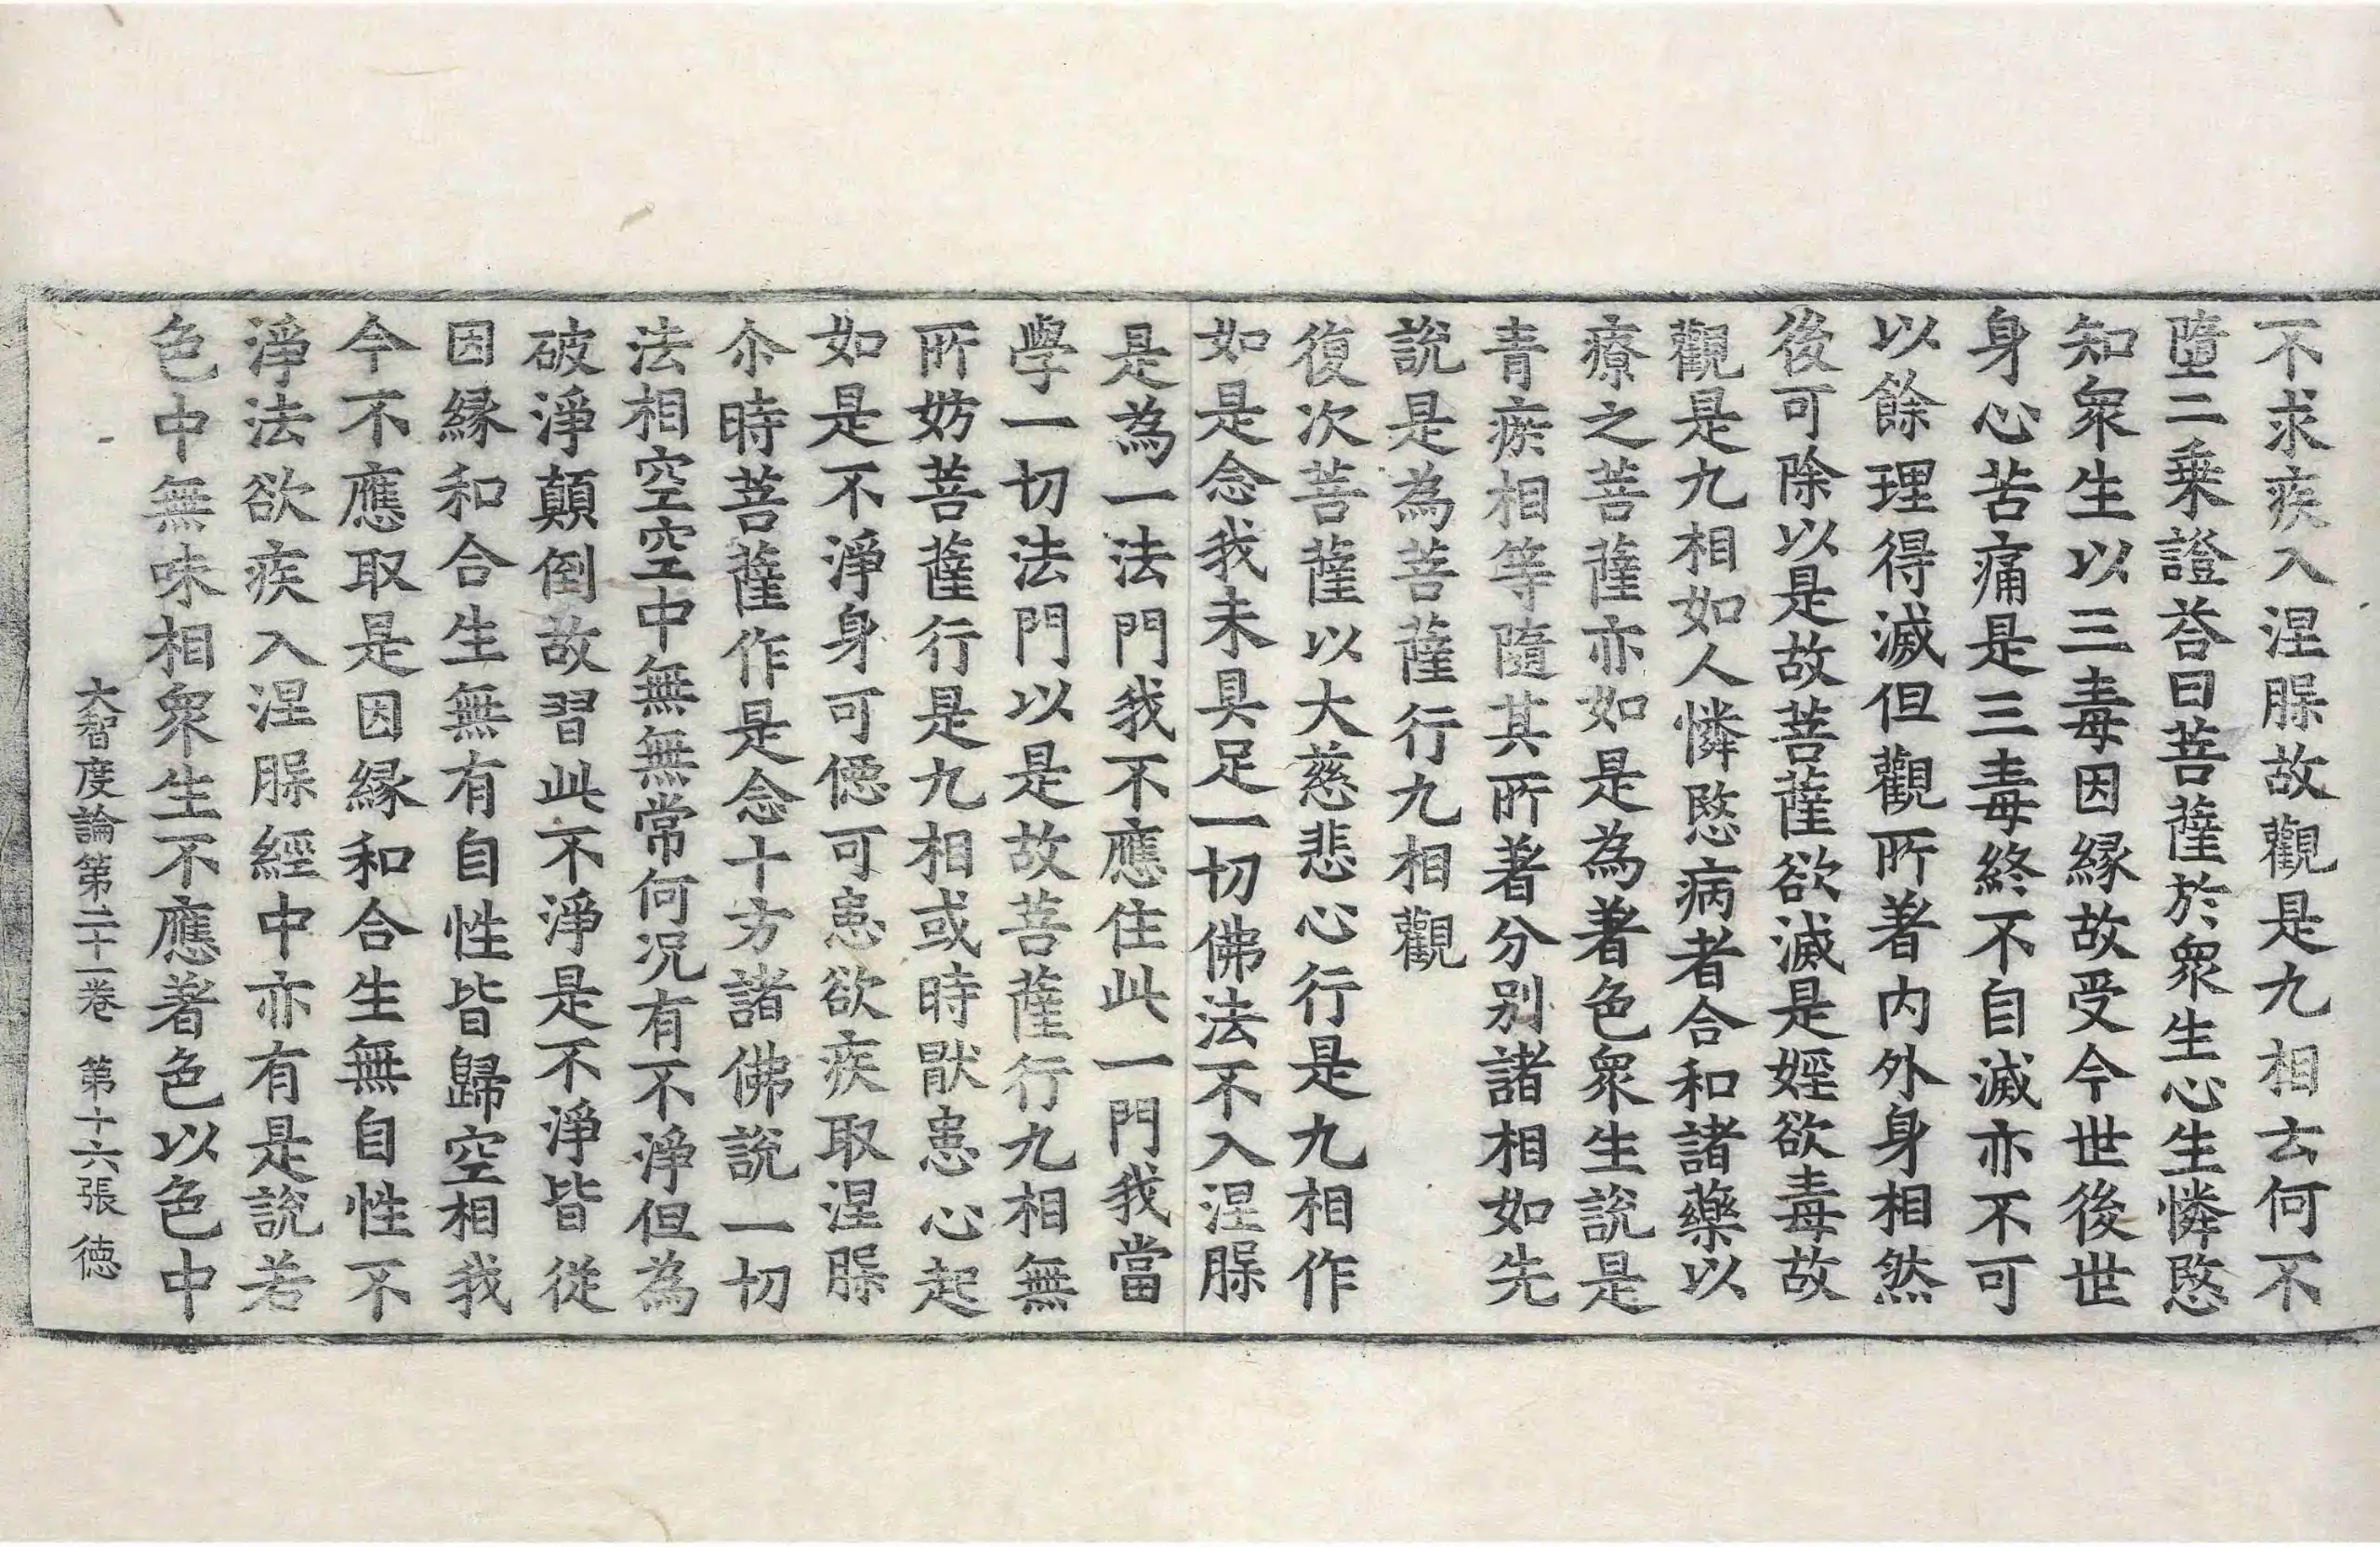 不求疾入涅脲故觀是九相云何不
墮二乗證荅曰菩薩於衆生心生憐愍
知衆生以三毒因縁故受今世後世
身心苦痛是三毒終不自滅亦不可
以餘理得滅但觀所著内外身相然
後可除以是故菩薩欲滅是婬欲毒故
觀是九相如人憐愍病者合和諸藥以
療之菩薩亦如是為著色衆生說是
青瘀相等隨其所著分别諸相如先
說是為菩薩行九相觀
復次菩薩以大慈悲心行是九相作
如是念我未具足一切佛法不入涅脲
是為一法門我不應住此一門我當
學一切法門以是故菩薩行九相無
所妨菩薩行是九相或時猒患心起
如是不淨身可𢙣可患欲疾取涅脲
尒時菩薩作是念十方諸佛說一切
法相空空中無無常何况有不淨但為
破淨顛倒故習此不淨是不淨皆從
因縁和合生無有自性皆歸空相我
今不應取是因縁和合生無自性不
淨法欲疾入涅脲經中亦有是說若
色中無味相衆生不應著色以色中
大智度論第二十一卷 第十六張 徳